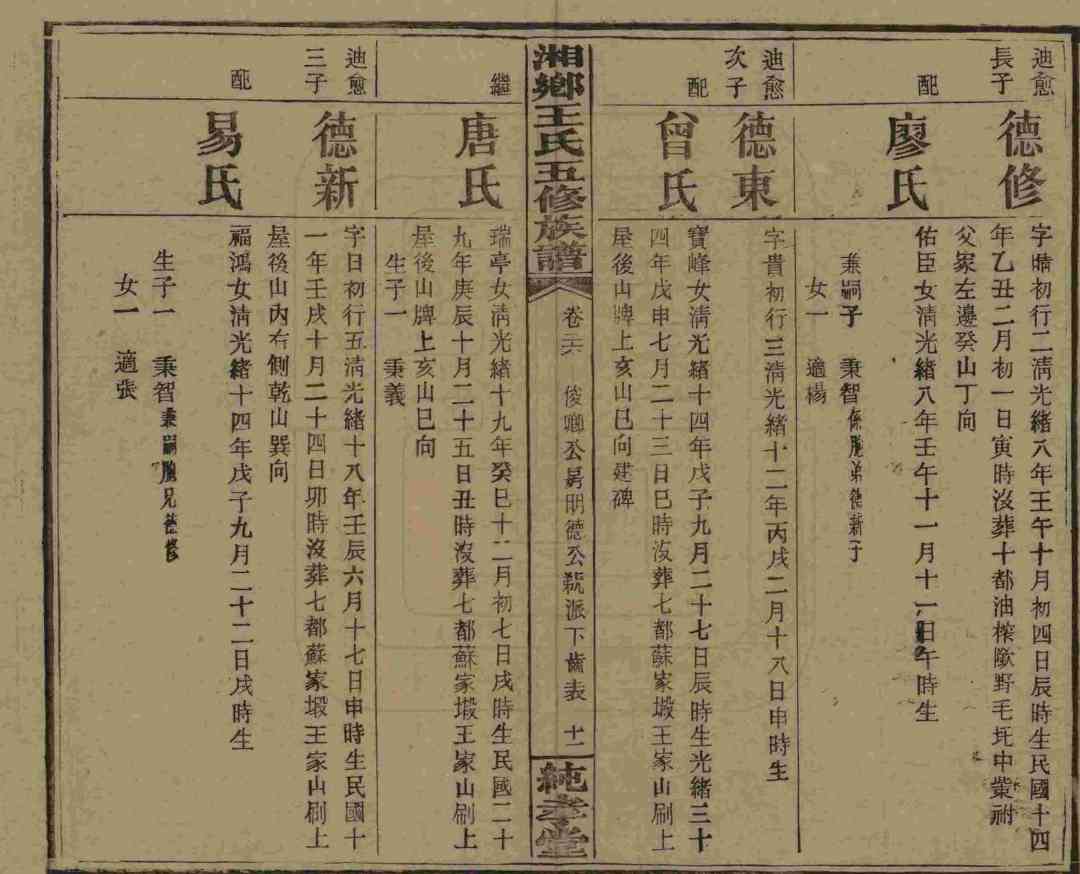 迪愈
長子
德修
字晴初行二淸光緒八年壬午十月初四日辰時生民國十四
年乙丑二月初一日寅時沒葬十都油榨歐野毛圫中紫祔
父冢左邊癸山丁向
配
廖氏
佑臣女淸光緒八年壬午十一月十一日午時生
兼嗣子 秉智係胞弟德新子
女一 適楊
迪愈
次子
德東
字貴初行三淸光緒十二年丙戌二月十八日申時生
配
曾氏
寶峰女淸光緒十四年戊子九月二十七日辰時生光緒三十
四年戊申七月二十三日巳時沒葬七都蘇家塅王家山刷上
屋後山牌上亥山巳向建碑
湘鄉王氏五修族譜
卷二六 俊卿公房明德公號派下齒表 十一
純孝堂
繼
唐氏
瑞亭女淸光緒十九年癸巳十二月初七日戌時生民國二十
九年庚辰十月二十五日丑時沒葬七都蘇家塅王家山刷上
屋後山牌上亥山巳向
生子一 秉義
迪愈
三子
德新
字日初行五淸光緒十八年壬辰六月十七日申時生民國十
一年壬戌十月二十四日卯時沒葬七都蘇家塅王家山刷上
屋後山內右側乾山巽向
配
易氏
福鴻女淸光緒十四年戊子九月二十二日戌時生
生子一 秉智兼嗣胞兄德修
女一 適張